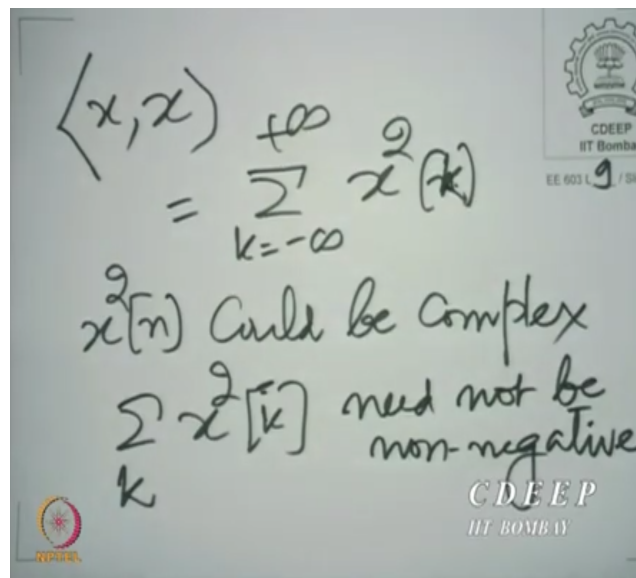 ⟨x,x⟩
= ∑_{k=-∞}^{+∞} x²[k]
x²[n] Could be Complex
∑_k x²[k] need not be
non-negative
CDEEP
IIT Bomba
EE 603 L 9 / Sl
CDEEP
IIT BOMBAY
NPTEL